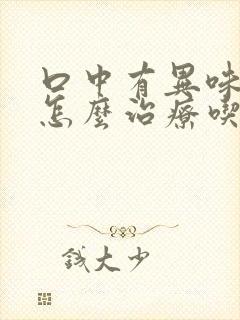 口中有異味
怎麼治療喫
錢大少